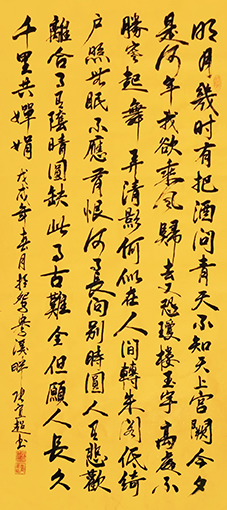 明月幾时有把酒问青天不知天上宫阙今夕
是何年我欲乘风歸去又恐瓊楼玉宇高处不
勝寒起舞弄清影何似在人间轉朱阁低绮
户照無眠不應有恨何事長向别时圆人有悲歡
離合月有陰晴圆缺此事古難全但願人長久
千里共嬋娟 戊戌年春月於鴛鴦溪畔 书